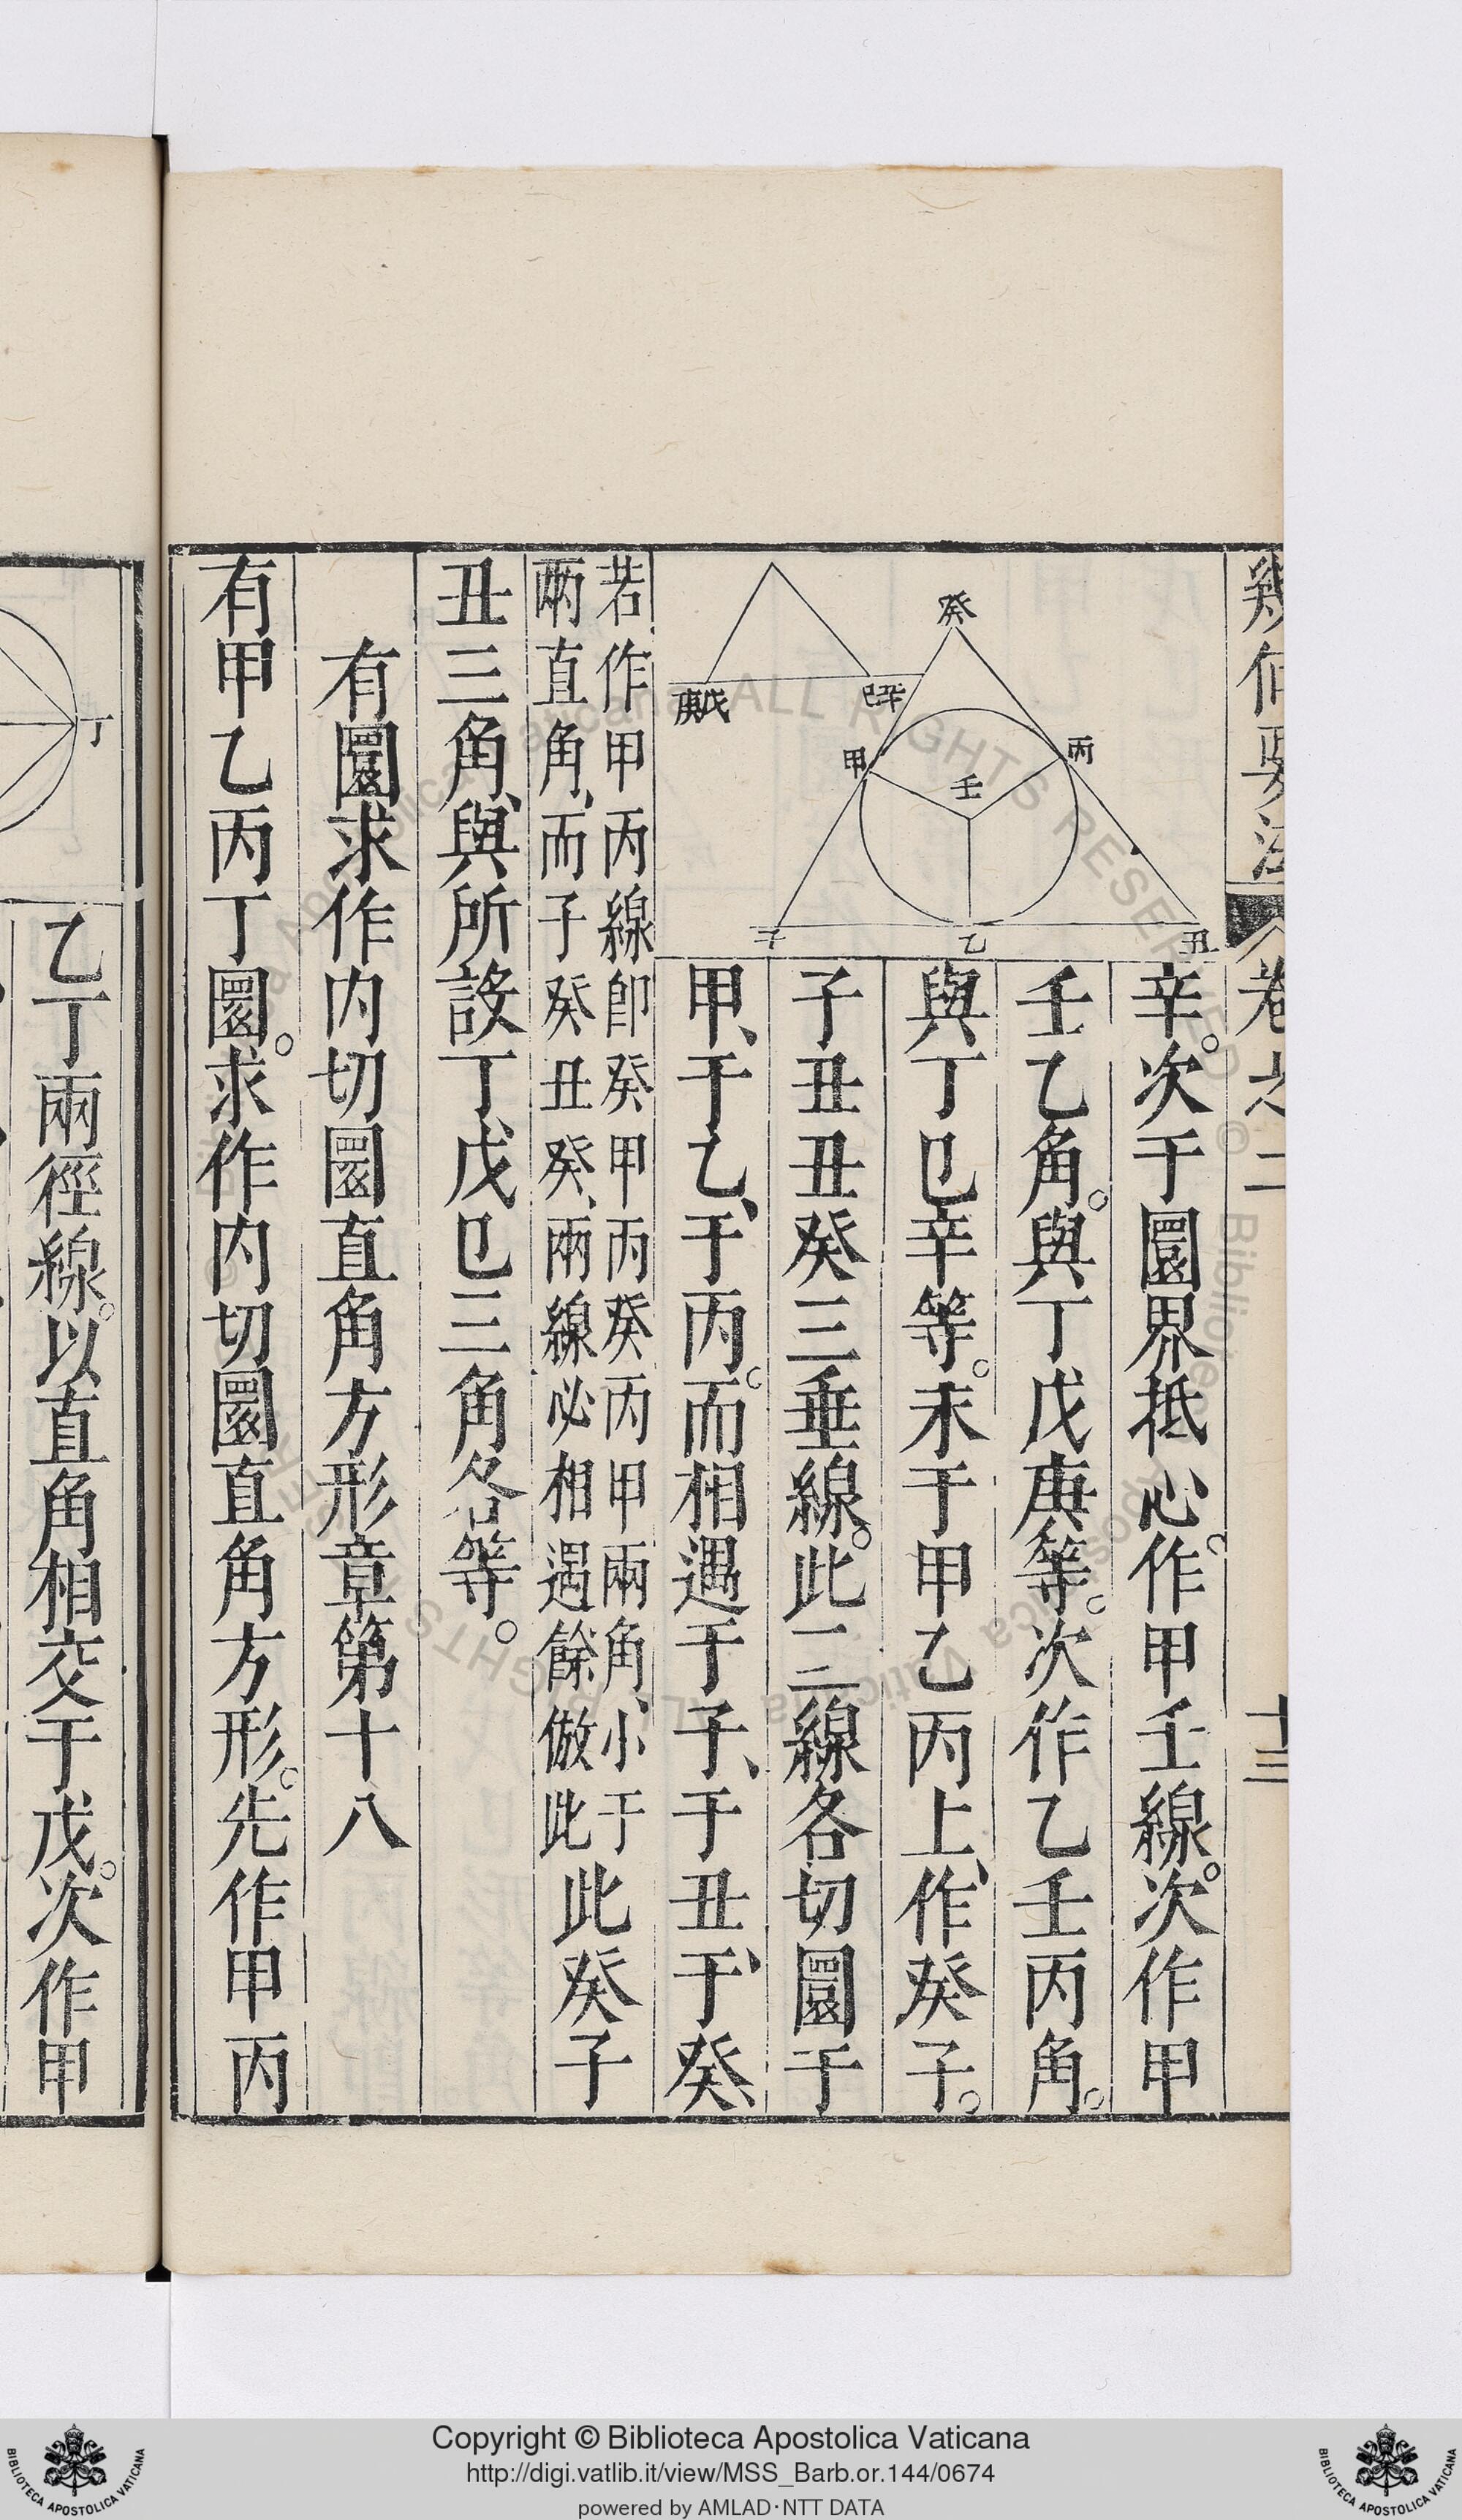 幾何要法 卷之二 十三
癸
丙
甲
壬
子 乙 丑
庚戊 己辛
辛。次于圜界抵心。作甲壬線。次作甲
壬乙角。與丁戊庚等。次作乙壬丙角。
與丁巳辛等。末于甲乙丙上、作癸子。
子丑丑癸三垂線。此三線各切圜于
甲、于乙、于丙。而相遇于子、于丑、于癸、
若作甲丙線卽癸甲丙癸丙甲兩角、小于
兩直角、而子癸丑癸、兩線必相遇餘倣此
此癸子
丑三角、與所設丁戊巳三角各等。
有圜求作内切圜直角方形章第十八
有甲乙丙丁圜。求作内切圜直角方形。先作甲丙
丁
乙丁兩徑線。以直角相交于戊。次作甲
Copyright © Biblioteca Apostolica Vaticana
http://digi.vatlib.it/view/MSS_Barb.or.144/0674
powered by AMLAD·NTT DATA
BIBLIOTECA APOSTOLICA VATICANA
BIBLIOTECA APOSTOLICA VATICANA